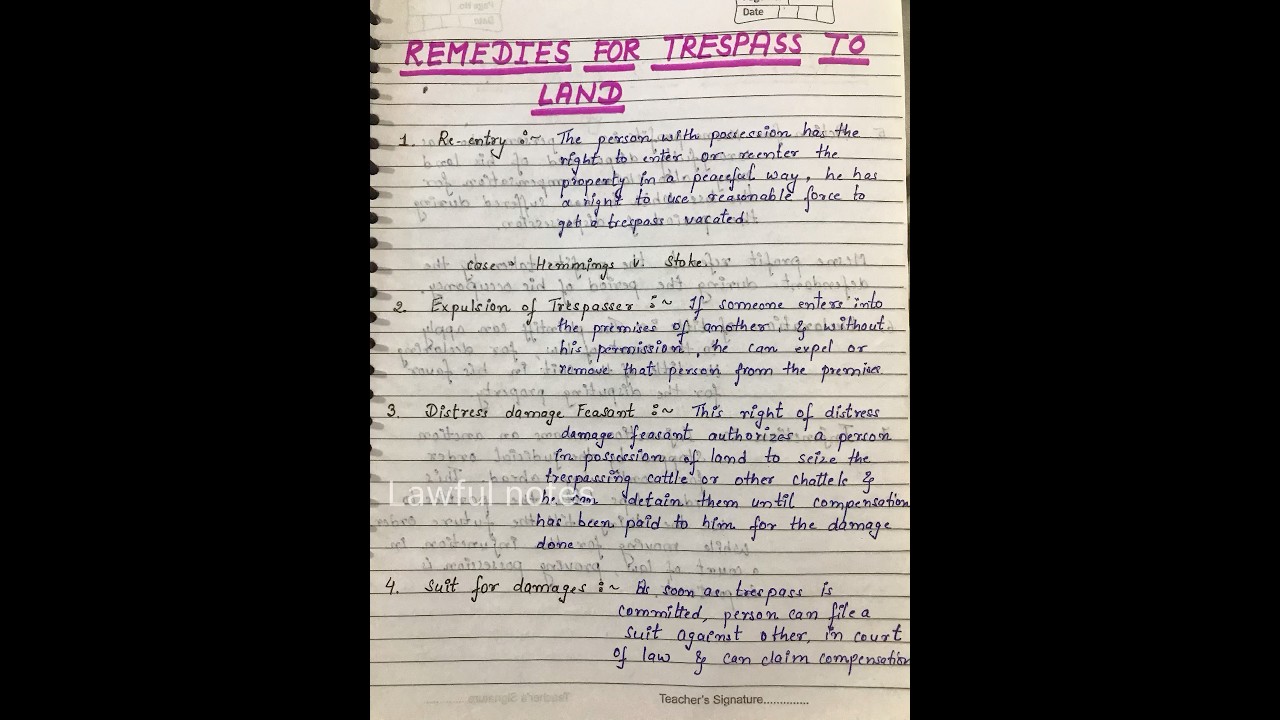 Date
REMEDIES FOR TRESPASS TO
LAND
1. Re-entry :~ The person with possession has the
right to enter or reenter the
property in a peaceful way, he has
a right to use reasonable force to
get a trespass vacated.
case Hemmings V Stoke
2. Expulsion of Trespasser :~ If someone enters into
the premises of another, & without
his permission, he can expel or
remove that person from the premises.
3. Distress damage Feasant :~ This right of distress
damage feasant authorizes a person
in possession of land to seize the
trespassing cattle or other chattels &
Lawful notes
he can detain them until compensation
has been paid to him for the damage
done
4. Suit for damages :~ As soon as trespass is
committed, person can file a
suit against other, in court
of law & can claim compensation
Teacher's Signature..............